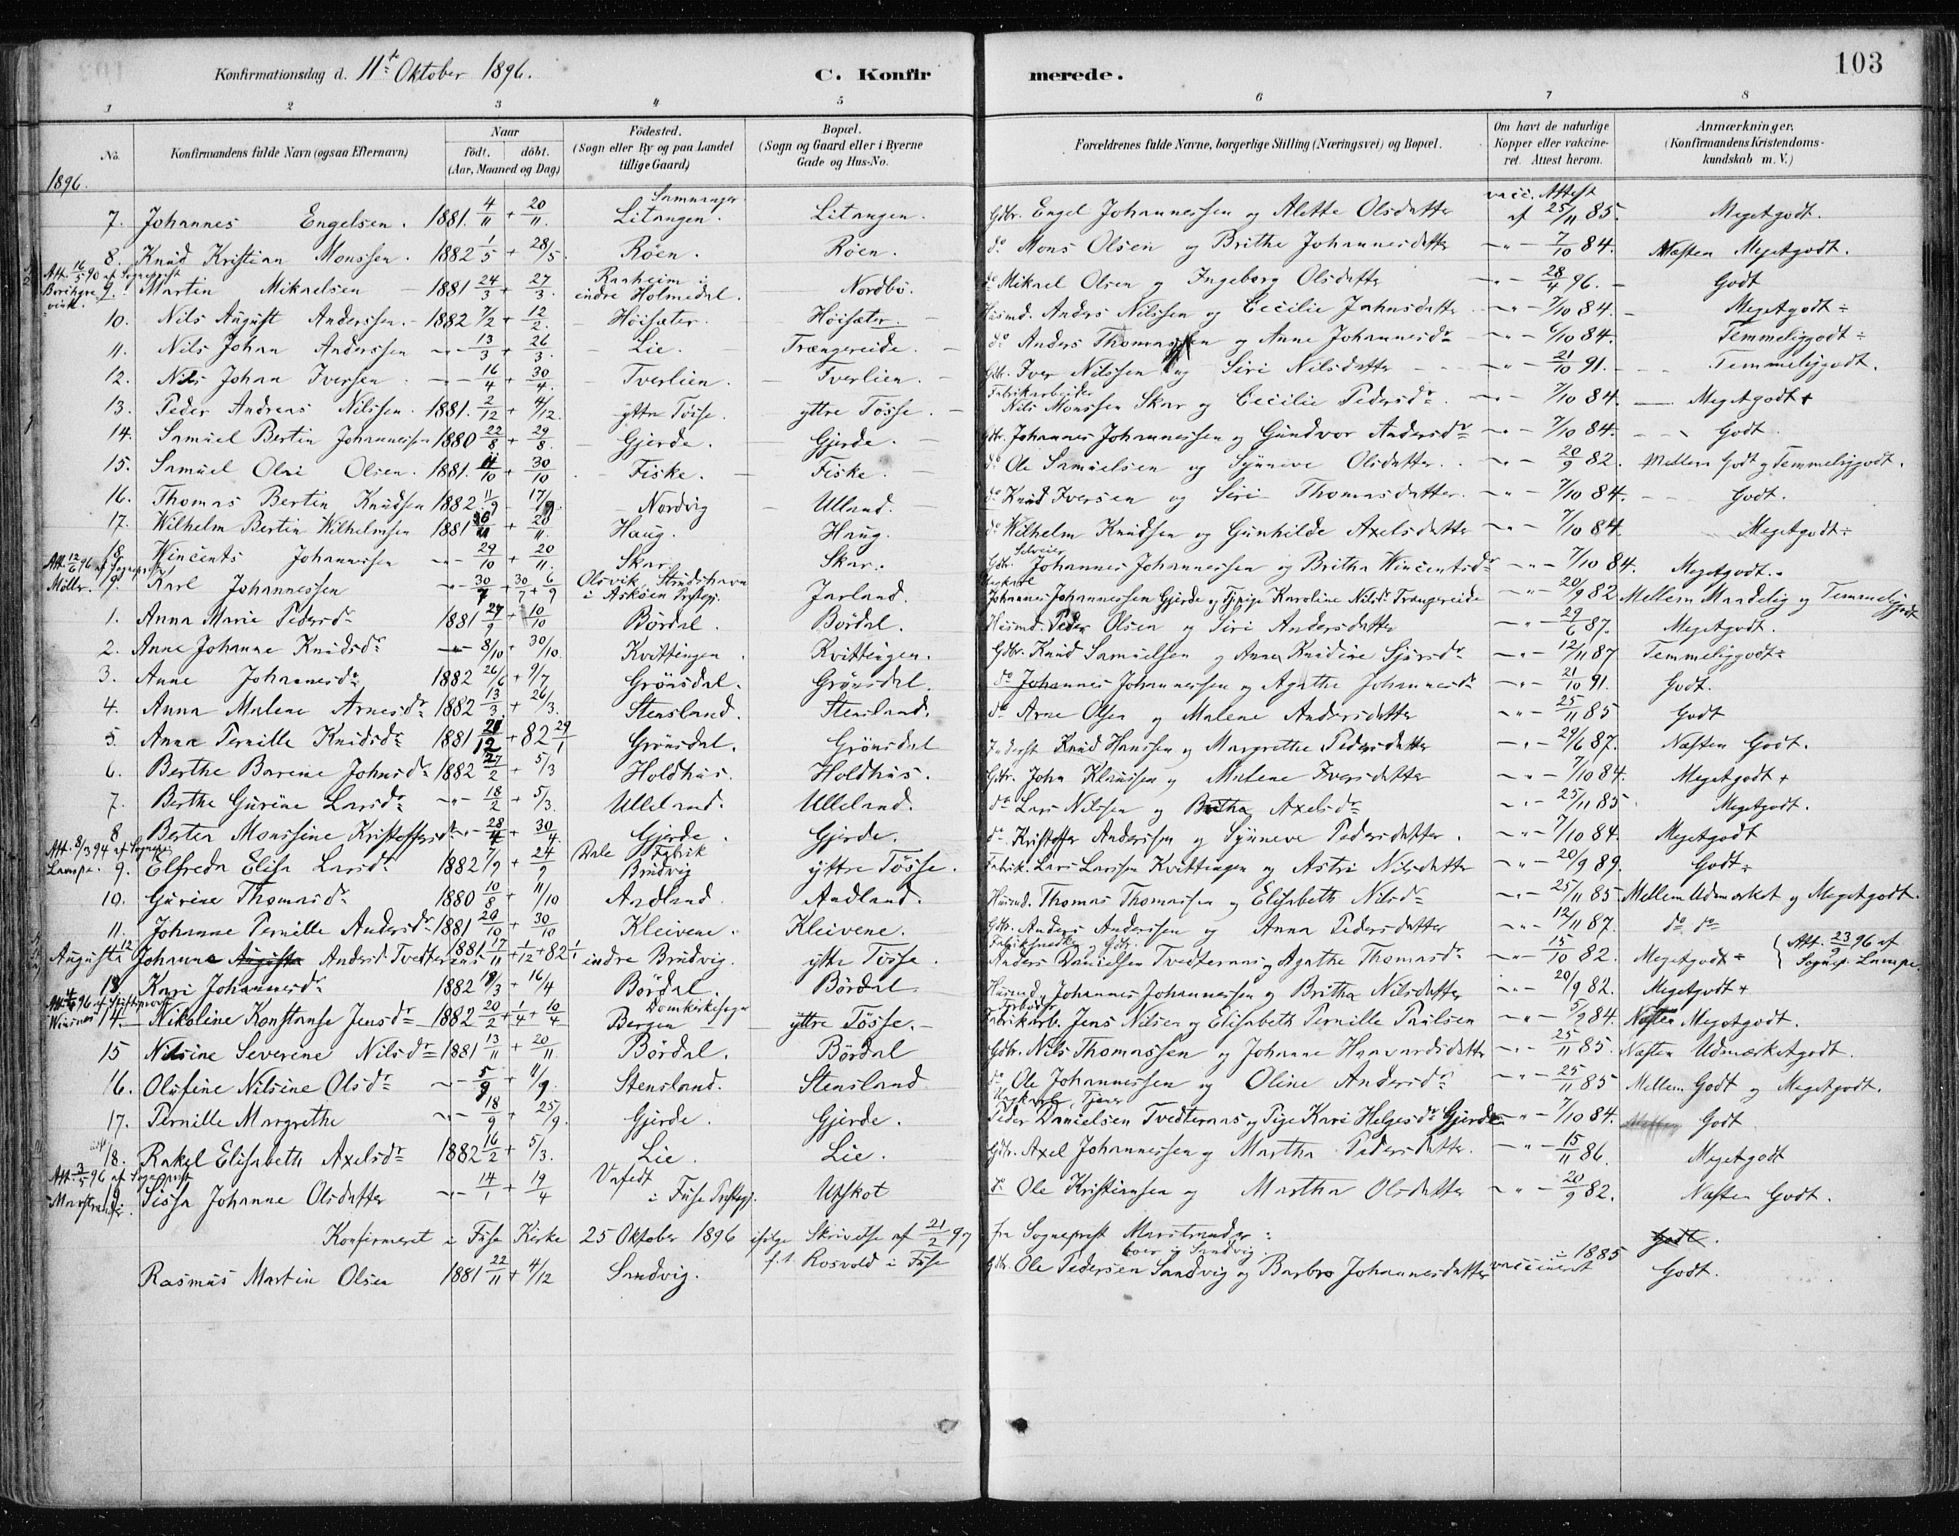 103
Konfirmationsdag d. 11te Oktober 1896. C. Konfir merede.
1 2 3 4 5 6 7 8
No. Konfirmandens fulde Navn (ogsaa Efternavn) Naar födt. döbt. (Aar, Maaned og Dag) Födested. (Sogn eller By og paa Landet tillige Gaard) Bopæl. (Sogn og Gaard eller i Byerne Gade og Hus-No. Forældrenes fulde Navne, borgerlige Stilling (Næringsvei) og Bopæl. Om havt de naturlige Kopper eller vaccineret. Attest herom. Anmærkninger. (Konfirmandens Kristendomskundskab m. V.)
1896.
7. Johannes Engelsen. 1881. 4/11 + 20/11. Samnanger Litangen. Litangen. Gdbr. Engel Johannessen og Alette Olsdatter vacc. Attest af 25/11 85. Megetgodt.
8. Knud Kristian Monssen. 1882 1/5 + 28/5. Röen. Röen. do Mons Olsen og Brithe Johannesdatter -"- 7/10 84. Næsten Megetgodt.
Att. 16/5 90 af Sognepræst
9. Martin Mikaelsen 1881 24/3 + 27/3. Raaheim i indre Holmedal. Nordbö. do Mikael Olsen og Ingeborg Olsdatter -"- 28/4 96. Godt
10. Nils August Anderssen. 1882 7/2 + 12/2. Höisæter. Höisæter. Husmd. Anders Nilssen og Cecilie Johnsdatter -"- 7/10 84. Megetgodt ÷
11. Nils Johan Anderssen -"- 13/3 + 26/3. Lie. Trængereide. do Anders Thomassen og Anne Johannesdr -"- 6/10 84. Temmeliggodt ÷
12. Nils Johan Iversen -"- 16/4 + 30/4. Tverlien. Tverlien. Gdbr. Iver Nilssen og Siri Nilsdatter -"- 21/10 91. Temmeliggodt.
13. Peder Andreas Nilssen. 1881. 2/12 + 4/12. yttre Tösse. yttre Tösse. Fabrikarbeider Nils Monssen Skar og Cecilie Pedersdr. -"- 7/10 84. Megetgodt +
14. Samuel Bertin Johannessen 1880 22/8 + 29/8. Gjerde. Gjerde. Gdbr. Johannes Johannessen og Gundvor Andersdr -"- 7/10 84. Godt
15. Samuel Olai Olsen. 1881. 11/10 + 30/10 Fiske. Fiske. do Ole Samuelsen og Synneve Olsdatter. -"- 20/9 82. Mellem Godt og Temmeliggodt.
16. Thomas Bertin Knudsen 1882 11/9 - 17/9. Nordvig Ulland. do Knud Iversen og Siri Thomasdatter. -"- 7/10 84. Godt.
17. Wilhelm Bertin Wilhelmsen 1881 + 20/11. Haug. Haug. do Wilhelm Knudsen og Gunhilde Axelsdatter -"- 7/10 84. Megetgodt ÷
18. Wincents Johannesen -"- 29/10 + 20/11. Skar. Skar. Gdbr. Selveier Johannes Johannessen og Britha Wincentsdr -"- 7/10 84. Megetgodt.
Att. 12/6 96 af Sognepræst Möller.
19. Karl Johannessen -"- 30/7 + 30/7 + 6/9 Olsvik, Strudshavn i Asköen Prstegj. Jarland. Johannes Johannessen Gjerde og Pige Karoline Nilsdr Trængereide -"- 20/9 82 Mellem Maadelig og Temmeliggodt
1. Anna Marie Pedersdr 1881 29/9 + 10/10 Bördal. Bördal. Husmd. Peder Olsen og Siri Andersdatter -"- 29/6 87. Megetgodt.
2. Anne Johanne Knudsdr -"- 8/10 + 30/10. Kvittingen. Kvittingen. Gdbr. Knud Samuelsen og Anna Knudine Sjursdr -"- 12/11 87 Temmeliggodt ÷
3. Anne Johannesdr. 1882 26/6 + 9/7 Grönsdal. Grönsdal. do Johannes Johannessen og Agathe Johannesdr -"- 21/10 91. Godt.
4. Anna Malene Arnesdr. 1882 13/3. + 26/3. Stensland. Stensland. do Arne Olsen og Malene Andersdatter -"- 25/11 85 Godt
5. Anna Pernille Knudsdr 1881 21/12 + 82 29/1 Grönsdal. Grönsdal Inderst Knud Hanssen og Margrethe Pedersdatter -"- 29/6 87. Næsten Godt.
6. Berthe Barene Johnsdr 1882 27/2 + 5/3 Holdhus. Holdhus. Gdbr. John Klaussen og Malene Iversdatter -"- 7/10 84. Megetgodt +
7. Berthe Gurine Larsdr -"- 18/2 + 5/3. Ulleland. Ulleland. do Lars Nilssen og Britha Axelsdr -"- 25/11 85 Megetgodt.
8 Berter Monssine Kristoffersdr -"- 28/4 + 30/4. Gjerde. Gjerde. do Kristoffer Anderssen og Synneve Pedersdatter. -"- 7/10 84. Megetgodt
Att. 8/3 94 af Sognepr. Lampe.
9. Elfreda Elisa Larsdr 1882 7/9 + 24/9 Dale Fabrik Brudvig yttre Tösse. Fabrik. Lars Larssen Kvittingen og Astri Nilsdatter -"- 20/9 89. Godt ÷
10. Gurine Thomasdr 1880 10/8 + 11/10 Aadland. Aadland. Husmd. Thomas Thomassen og Elisabeth Nilsdr -"- 25/11 85 Mellem Udmærket og Megetgodt.
11. Johanne Pernille Andersdr 1881 29/10 + 30/10 Kleivene. Kleivene. Gdbr. Anders Anderssen og Anna Pedersdatter -"- 12/11 87. do do
12 Augusta Johanna Augusta Andersd. Tvedteraas 1881 17/11 + 1/12 + 82 1/1 indre Brudvig. yttre Tösse. Fabriksnedker og Gdbr. Anders Danielsen Tvedteraas og Agathe Thomasdr -"- 15/10 82. Megetgodt ÷ Att. 23/9 96 af Sognepr. Lampe.
13. Kari Johannesdr 1882 19/3 + 16/4 Bördal. Bördal. Husmd. Johannes Johannessen og Britha Nilsdatter -"- 20/9 82. Megetgodt +
14. Nikoline Konstanse Jensdr 1882 20/2 + 1/4 + 10/4 Domkirkesogn Bergen yttre Tösse. Fabrikarb. Jens Nilsen og Elisabeth Pernille Paulsen -"- 5/9 84. Næsten Megetgodt.
15 Nilsine Severine Nilsdr 1881 13/11 + 20/11 Bördal. Bördal Gdbr. Nils Thomassen og Johanne Haavardsdatter -"- 25/11 85. Næsten Udmærketgodt.
16. Olufine Nilsine Olsdr -"- 5/9 + 11/9. Stensland. Stensland. do Ole Johannessen og Oline Andersdr -"- 25/11 85 Mellem Godt og Megetgodt.
17. Pernille Margrethe -"- 18/9 + 25/9. Gjerde. Gjerde. Ungkarl, Tjener Peder Danielsen Tvedteraas og Pige Kari Helgesdr Gjerde -"- 7/10 84. Godt
18. Rakel Elisabeth Axelsdr 1882 16/2 + 5/3. Lie. Lie. Gdbr. Axel Johannessen og Martha Pedersdatter. -"- 15/11 86. Megetgodt
Att. 3/5 96 af Sognepræst Marstrander.
19. Sissa Johanne Olsdatter -"- 14/1 + 19/4 Vinfedt i Fuse Prstegj. Utskot do Ole Kristiansen og Martha Olsdatter -"- 20/9 82. Næsten Godt.
Konfirmeret i Fuse Kirke 25 Oktober 1896 ifölge Skrivelse af 21/2 97 fra Sogneprest Marstrander: Godt.
f.t. Rosvold i Fuse
Rasmus Martin Olsen 1881 22/11 + 4/12 Sandvig. Gdbr. Ole Pedersen Sandvig og Barbro Johannesdatter boer i Sandvig vaccineret i 1885 Godt.